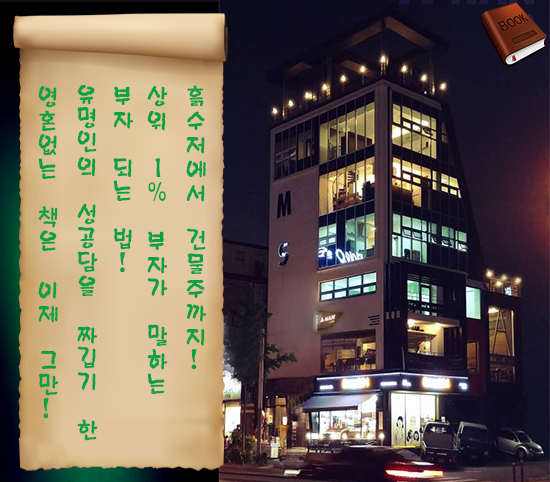 흙수저에서 건물주까지!
상위 1% 부자가 말하는
부자 되는 법!
유명인의 성공담을 짜깁기 한
영혼없는 책은 이제 그만!
BOOK
M
S